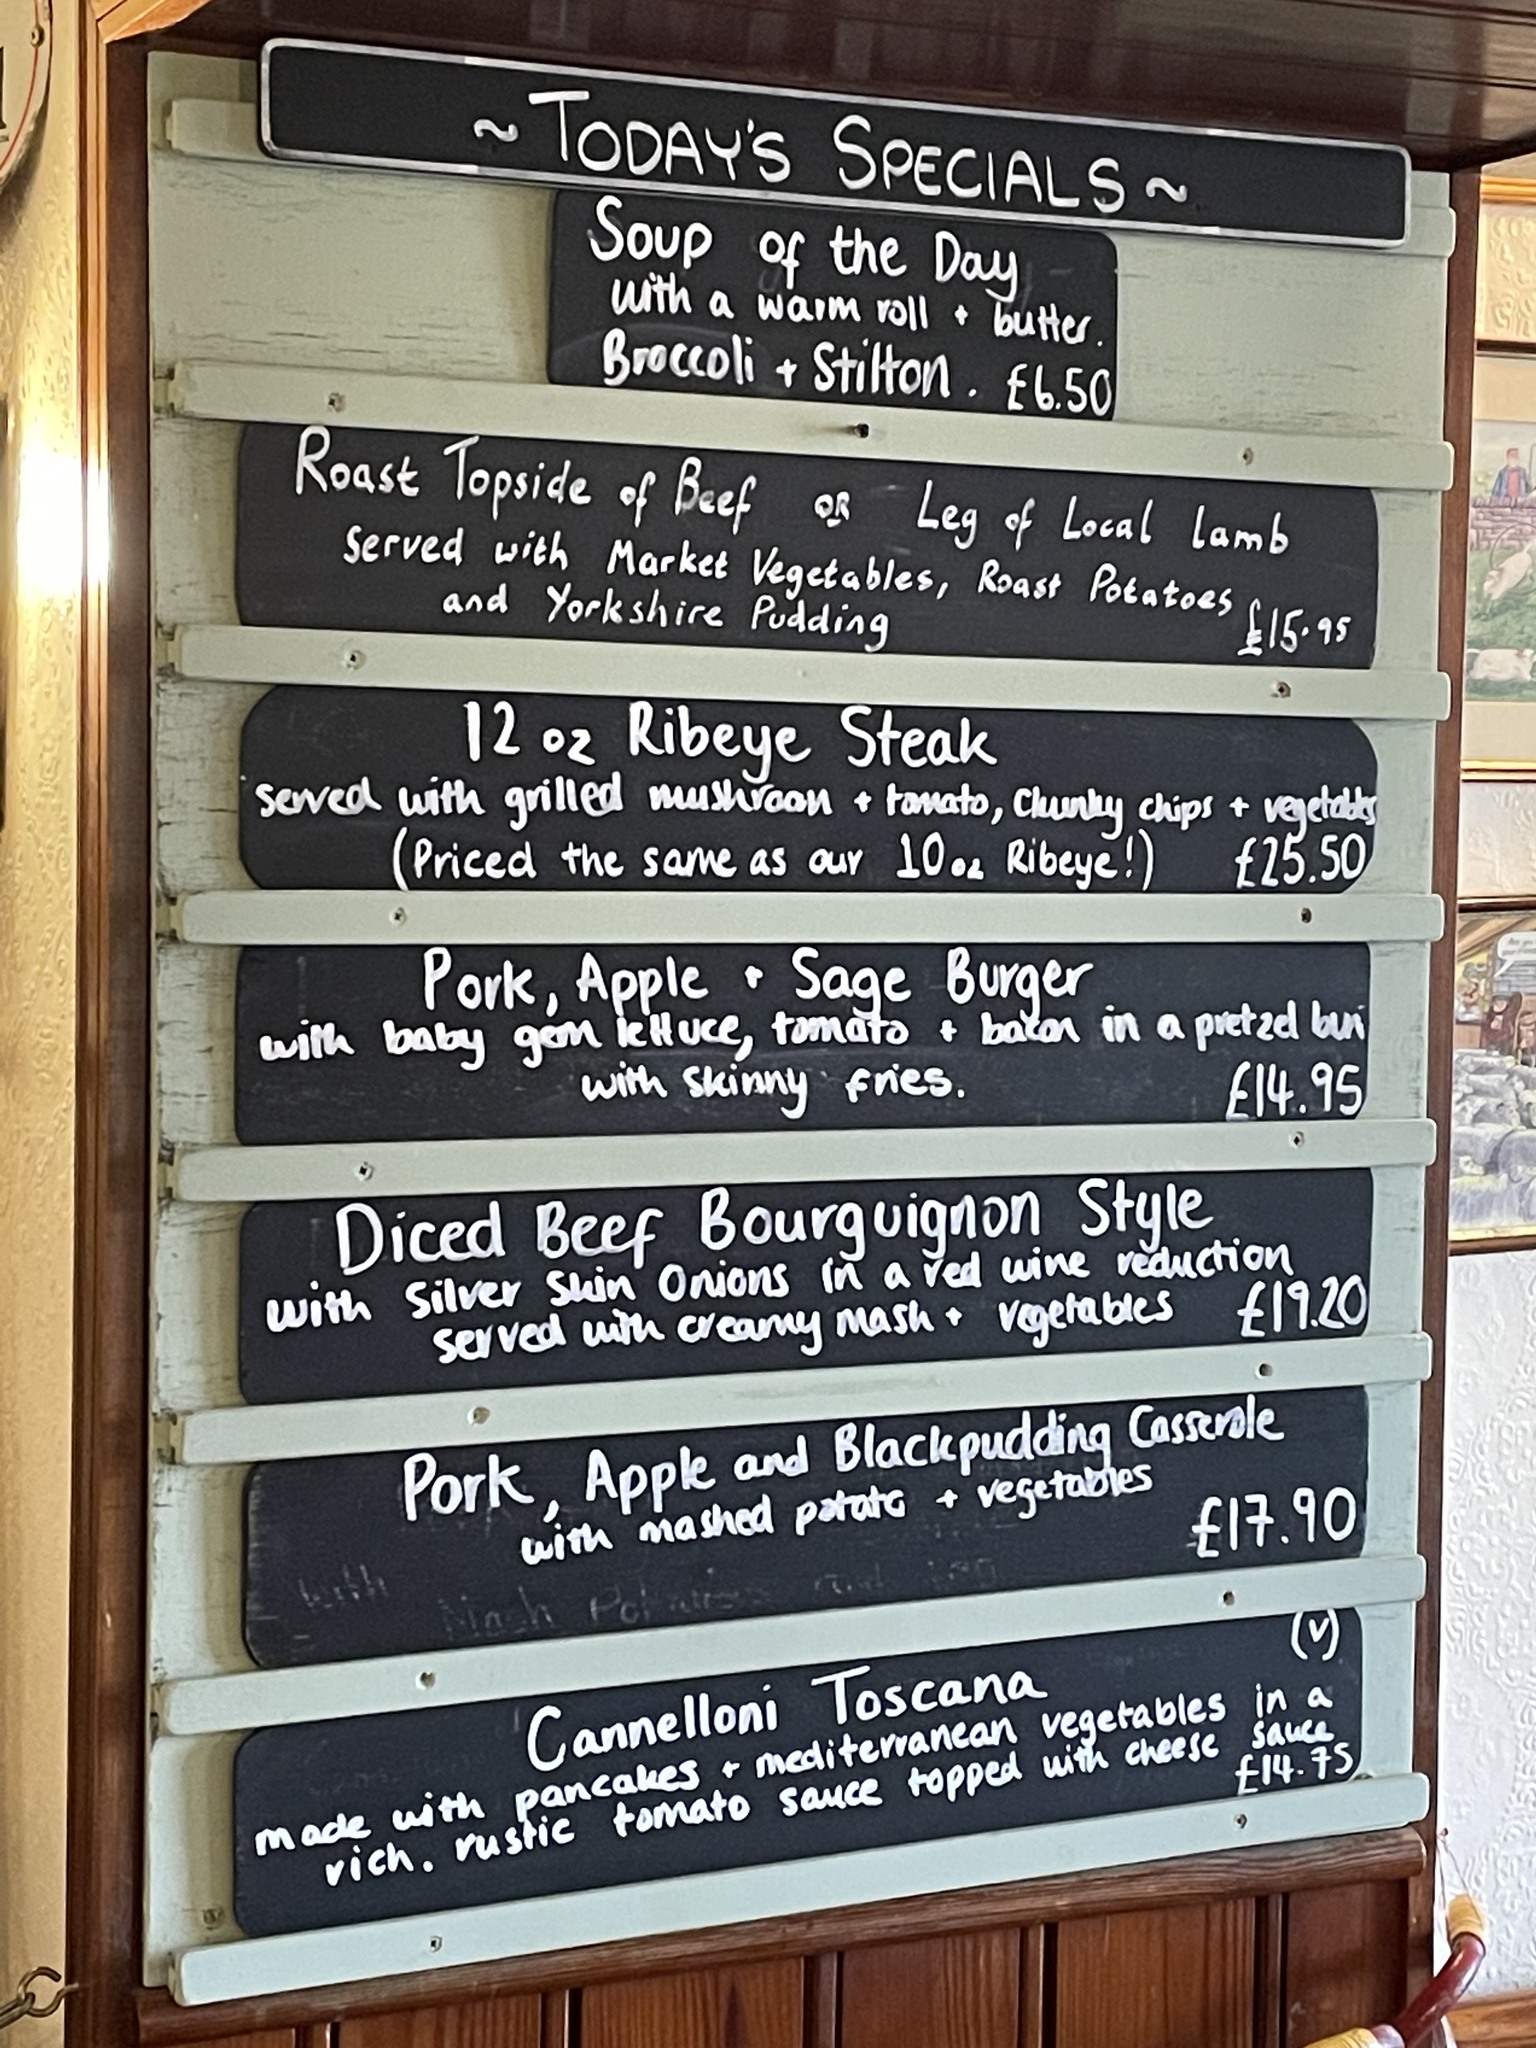 ~ TODAY'S SPECIALS ~
Soup of the Day
with a warm roll + butter.
Broccoli + Stilton. £6.50
Roast Topside of Beef OR Leg of Local Lamb
Served with Market Vegetables, Roast Potatoes
and Yorkshire Pudding £15.95
12 oz Ribeye Steak
served with grilled mushroom + tomato, chunky chips + vegetables
(Priced the same as our 10oz Ribeye!) £25.50
Pork, Apple + Sage Burger
with baby gem lettuce, tomato + bacon in a pretzel bun
with skinny fries. £14.95
Diced Beef Bourguignon Style
with Silver Skin Onions in a red wine reduction
served with creamy mash + vegetables £19.20
Pork, Apple and Blackpudding Casserole
with mashed potato + vegetables
£17.90
with Mash Potatoes and
(v)
Cannelloni Toscana
made with pancakes + mediterranean vegetables in a
rich. rustic tomato sauce topped with cheese sauce
£14.75